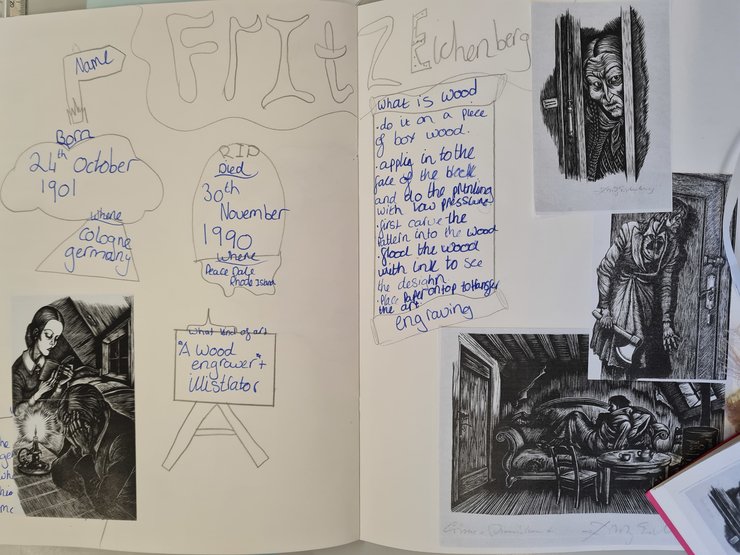 Name
Fritz Eichenberg
Born
24th October
1901
Where
Cologne
germany
RIP
Died
30th
November
1990
Where
Peace Dale
Rhode Island
What kind of art
"A wood
engrawer +
illistrator
What is wood
• do it on a piece
of box wood.
• applig in to the
face of the block
and do the prinking
with low pressure
• first carve the
pattein into the wood
• flood the wood
with ink to see
the desighn
• Place Paper on top to transfer
the art
engraving